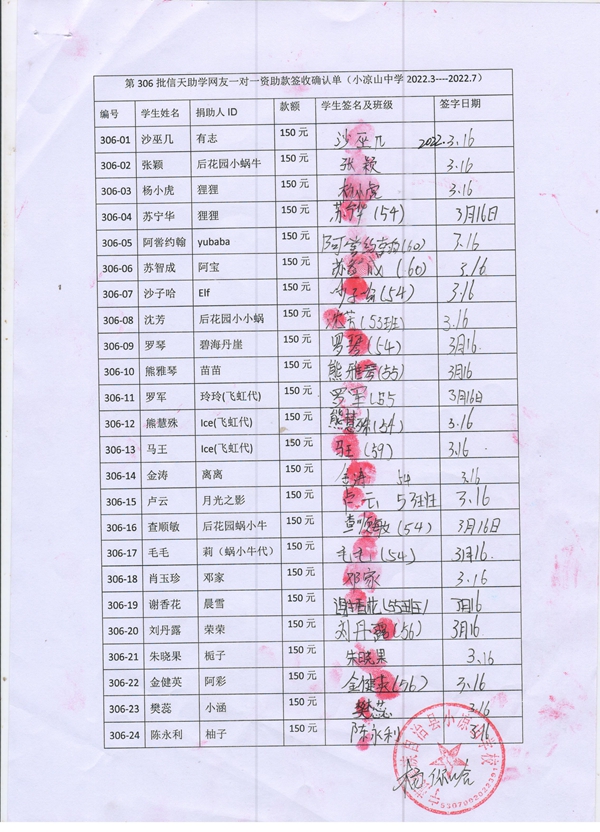 第 306 批信天助学网友一对一资助款签收确认单（小凉山中学 2022.3----2022.7）
编号 学生姓名 捐助人 ID 款额 学生签名及班级 签字日期
306-01 沙巫几 有志 150 元 沙巫几 2022.3.16
306-02 张颖 后花园小蜗牛 150 元 张颖 3.16
306-03 杨小虎 狸狸 150 元 杨小虎 3.16
306-04 苏宁华 狸狸 150 元 苏宁华(54) 3月16日
306-05 阿喾约翰 yubaba 150 元 (60) 3.16
306-06 苏智成 阿宝 150 元 苏智成(60) 3.16
306-07 沙子哈 Elf 150 元 沙子哈(54) 3.16
306-08 沈芳 后花园小小蜗 150 元 沈芳(53班) 3.16
306-09 罗琴 碧海丹崖 150 元 罗琴(54) 3月16.
306-10 熊雅琴 苗苗 150 元 熊雅琴(55) 3月16
306-11 罗军 玲玲(飞虹代) 150 元 罗军(55 3月16日
306-12 熊慧殊 Ice(飞虹代) 150 元 熊慧殊(54) 3.16
306-13 马王 Ice(飞虹代) 150 元 马王(59) 3.16
306-14 金涛 离离 150 元 金涛 54 3.16
306-15 卢云 月光之影 150 元 卢云 53班 3.16
306-16 查顺敏 后花园蜗小牛 150 元 查顺敏(54) 3月16日
306-17 毛毛 莉（蜗小牛代） 150 元 毛毛(54) 3月16.
306-18 肖玉珍 邓家 150 元 邓家 3.16
306-19 谢香花 晨雪 150 元 谢香花(55班) 3月16
306-20 刘丹露 荣荣 150 元 刘丹露(56) 3月16
306-21 朱晓果 栀子 150 元 朱晓果 3.16
306-22 金健英 阿彩 150 元 金健英(56) 3.16
306-23 樊蕊 小涵 150 元 樊蕊 3.16
306-24 陈永利 柚子 150 元 陈永利 3.16